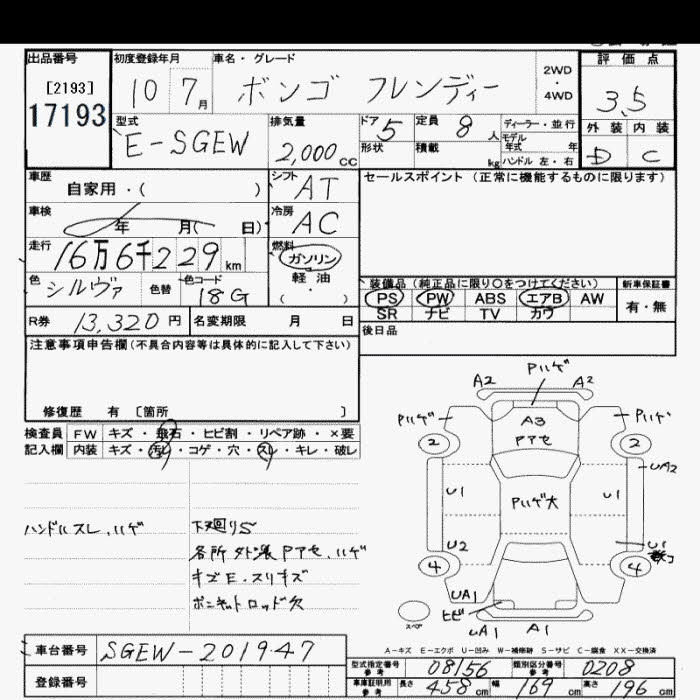 出品番号 初度登録年月 車名・グレード 評価点
[2193] 10 7月 ボンゴ フレンディー 2WD・4WD 3.5
17193
型式 排気量 ドア 5 定員 8人 ディーラー・並行 外装 内装
E-SGEW 2,000cc 形状 積載 kg モデル年式 年 ハンドル 左・右 D C
車歴 自家用・( ) シフト AT セールスポイント (正常に機能するものに限ります)
車検 年 月( 日) 冷房 AC
走行 16万6千229km 燃料 ガソリン 軽油 ( ・ )
色 シルヴァ 色替 色コード 18G 装備品 (純正品に限り○をつけてください) 新車保証書
PS PW ABS エアB AW 有・無
SR ナビ TV カワ
R券 13,320円 名変期限 月 日 後日品
注意事項申告欄(不具合内容等は具体的に記入して下さい)
修復歴 有 [箇所 ]
検査員 FW キズ・飛石・ヒビ割・リペア跡・×要
記入欄 内装 キズ・汚れ・コゲ・穴・スレ・キレ・破レ
ハンドルスレ,ハゲ 下廻りS
各所 タド凍 Pアセ,ハゲ
キズE.スリキズ
ボンネットロッド欠
A2 Pハゲ A2
Pハゲ A3 Pハゲ
2 Pアセ 2
UA2
U1 Pハゲ大 U1
U2 U1
4 4
UA1
ヒビ
スペア UA1 A1
A-キズ E-エクボ U-凹み W-補修跡 S-サビ C-腐食 XX-交換済
車台番号 SGEW-201947
登録番号
型式指定番号 参考 08156 類別区分番号 参考 0208
車庫証明用 参考 長さ 458cm 幅 169cm 高さ 196cm